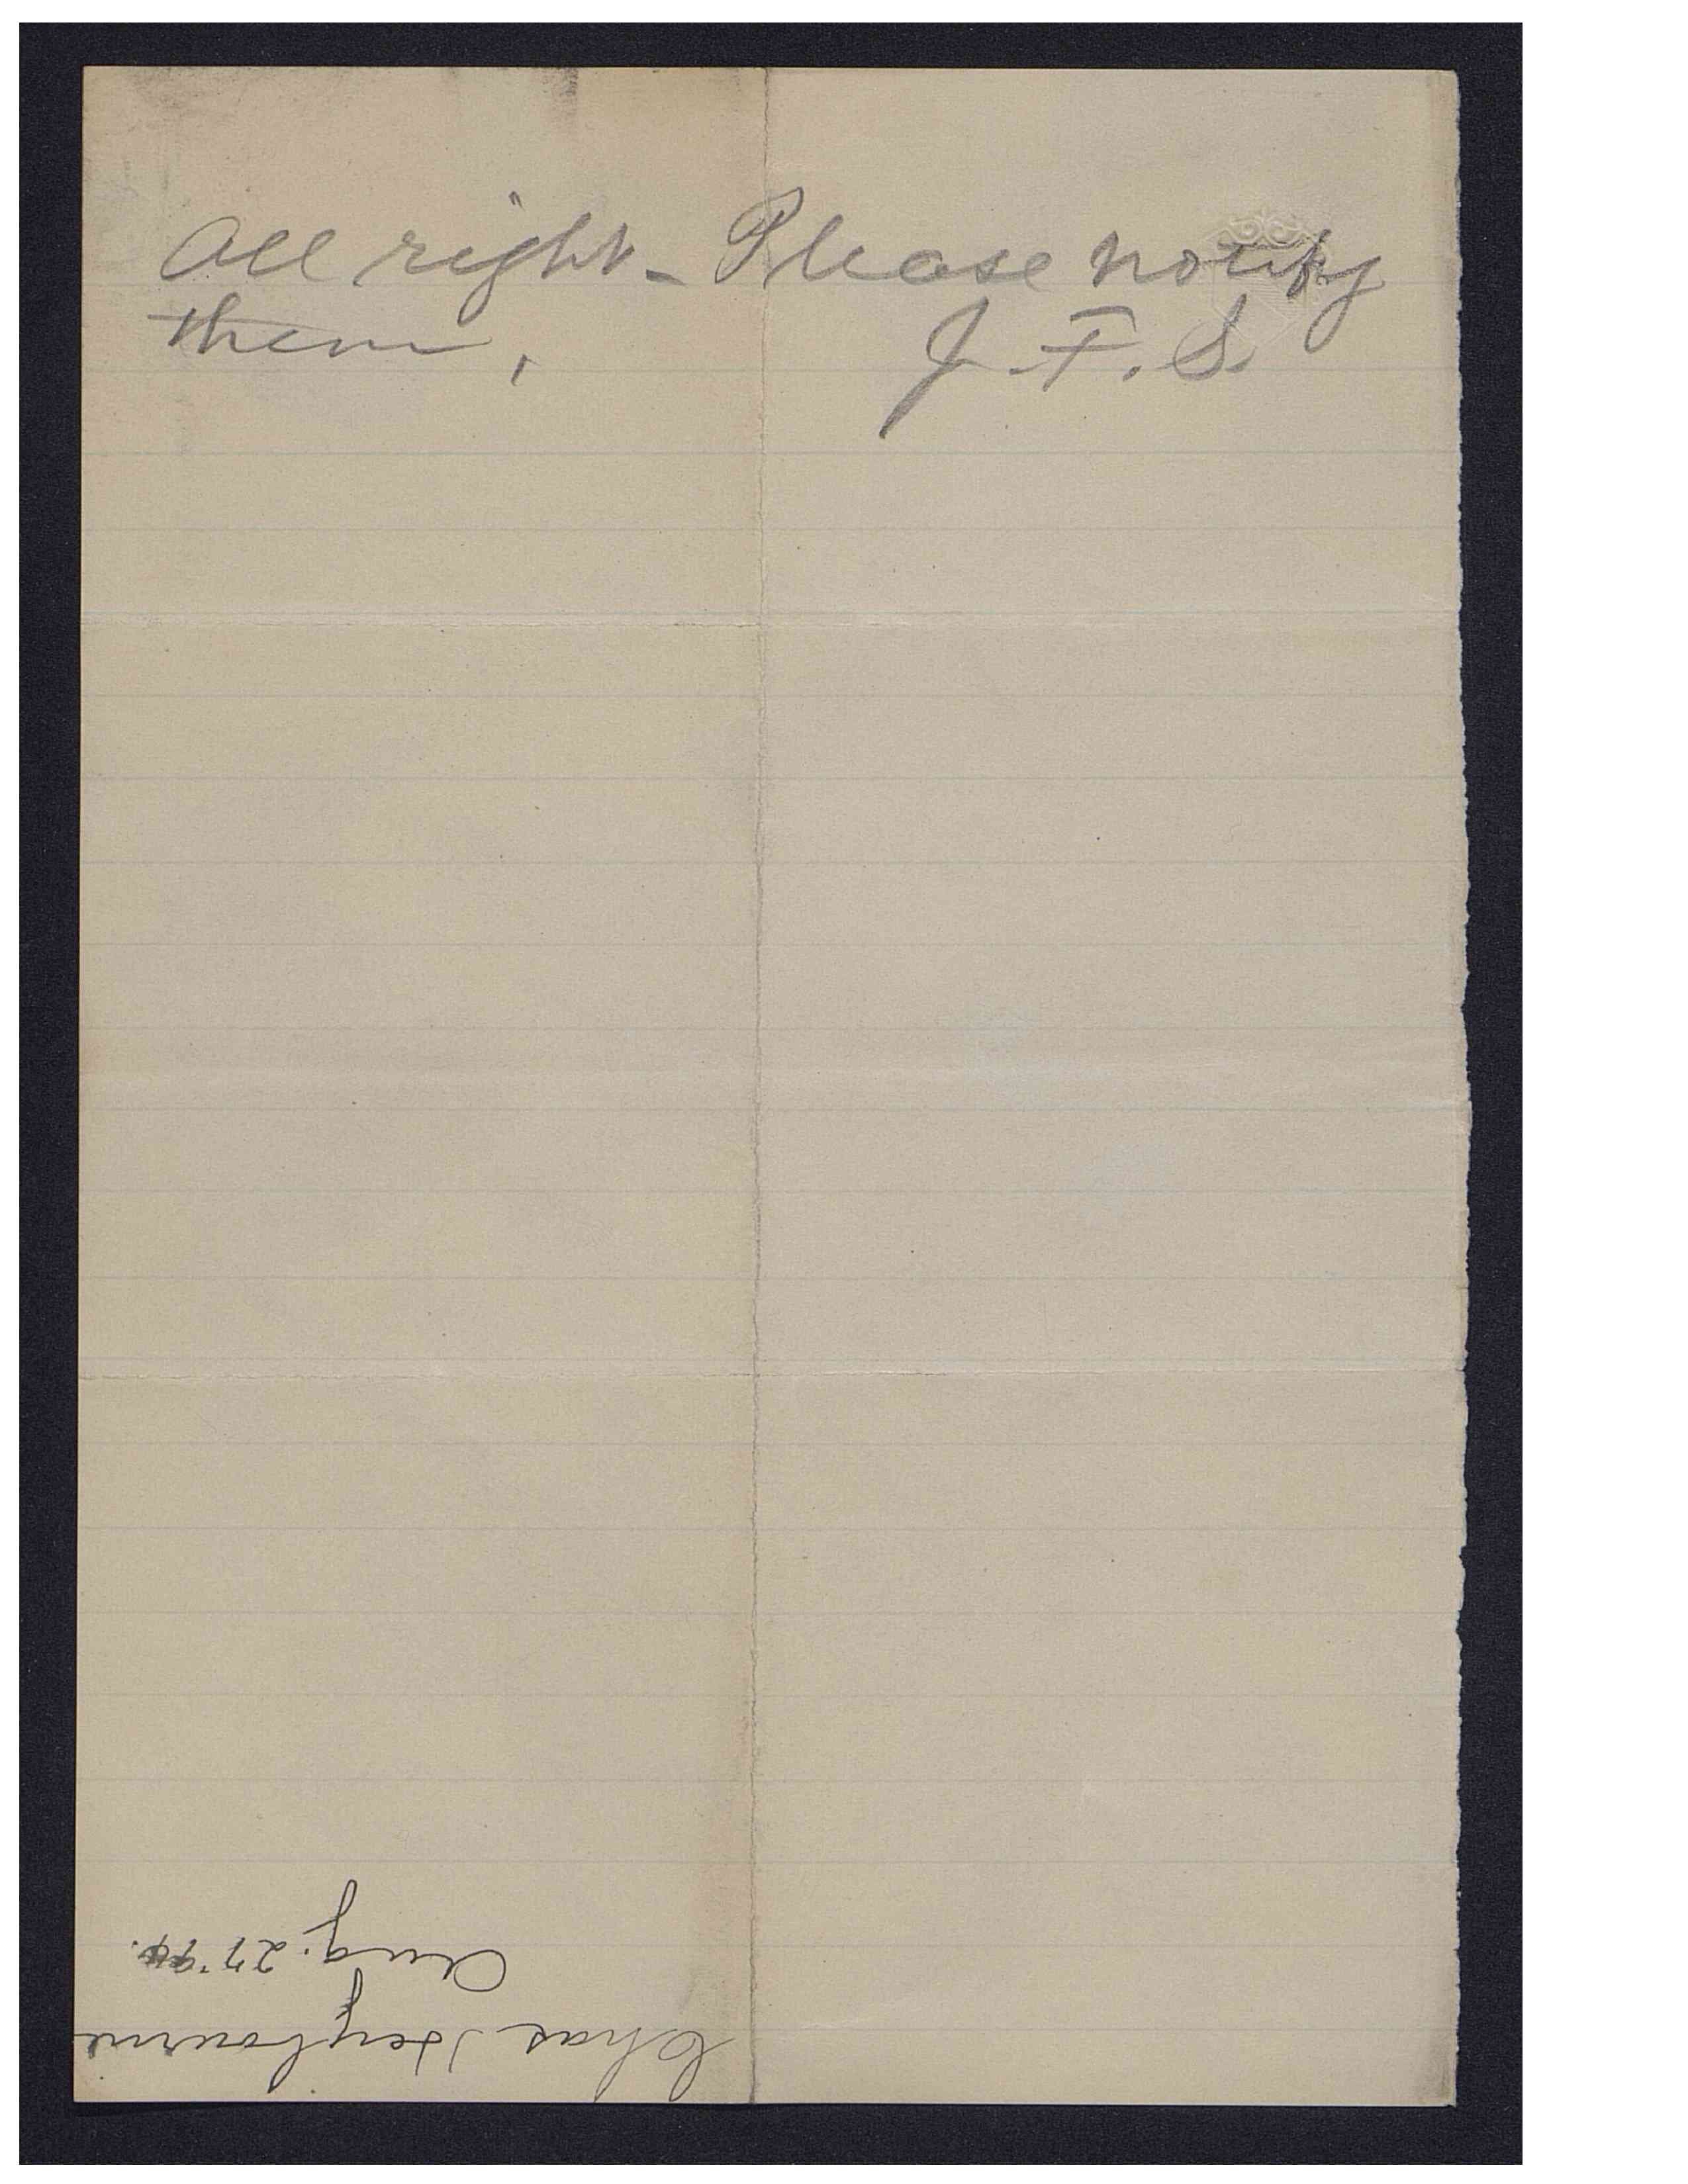 All right - Please notify
them, J. F. S.
Chas Heybourne
Aug. 27 '94.